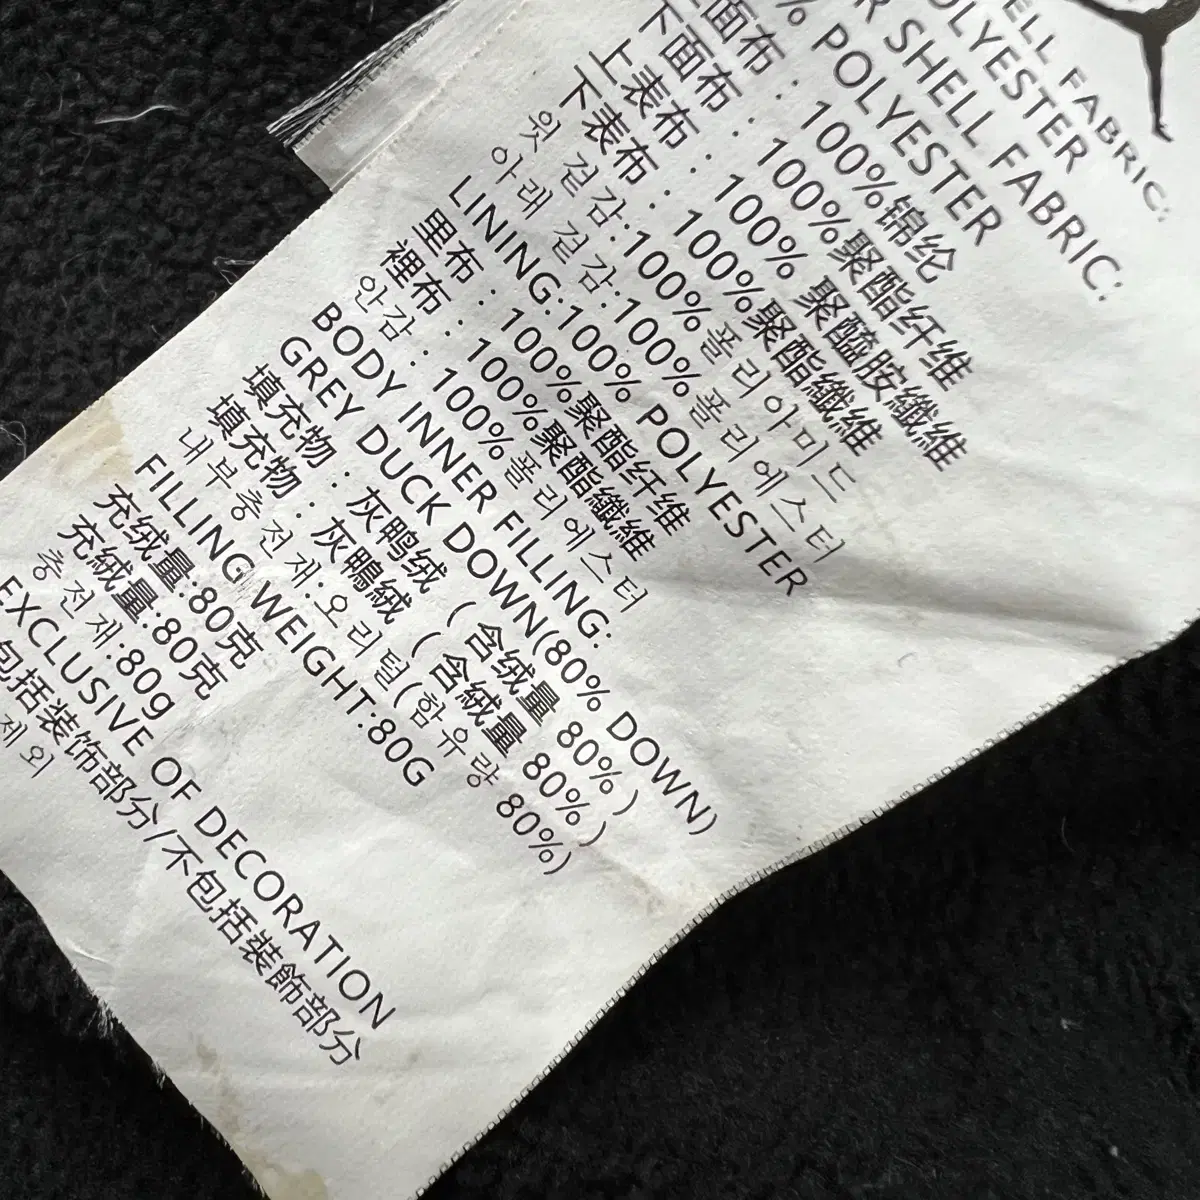 ELL FABRIC:
OLYESTER
R SHELL FABRIC:
% POLYESTER
面布：100%锦纶
下面布：100%聚酯纤维
上表布：100% 聚醯胺纖維
下表布：100%聚酯纖維
윗 겉감:100% 폴리아미드
아래 겉감:100% 폴리에스터
LINING:100% POLYESTER
里布：100%聚酯纤维
裡布：100%聚酯纖維
안감：100%폴리에스터
BODY INNER FILLING:
GREY DUCK DOWN(80% DOWN)
填充物：灰鸭绒（含绒量 80%）
填充物：灰鴨絨（含絨量 80%）
내부충전재:오리털(함유량 80%)
FILLING WEIGHT:80G
充绒量:80克
充絨量:80克
충전재:80g
EXCLUSIVE OF DECORATION
包括装饰部分/不包括裝飾部分
제외